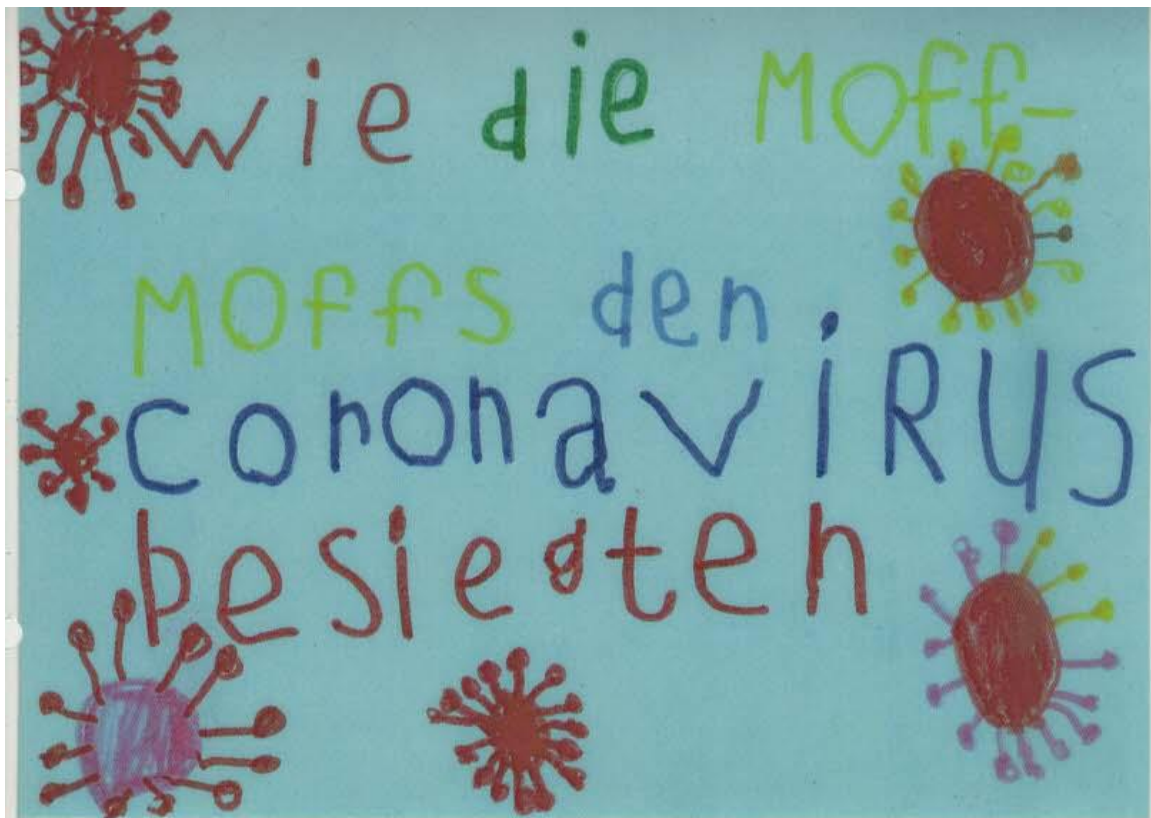 wie die Moff-
Moffs den
coronaviRUS
besiegten